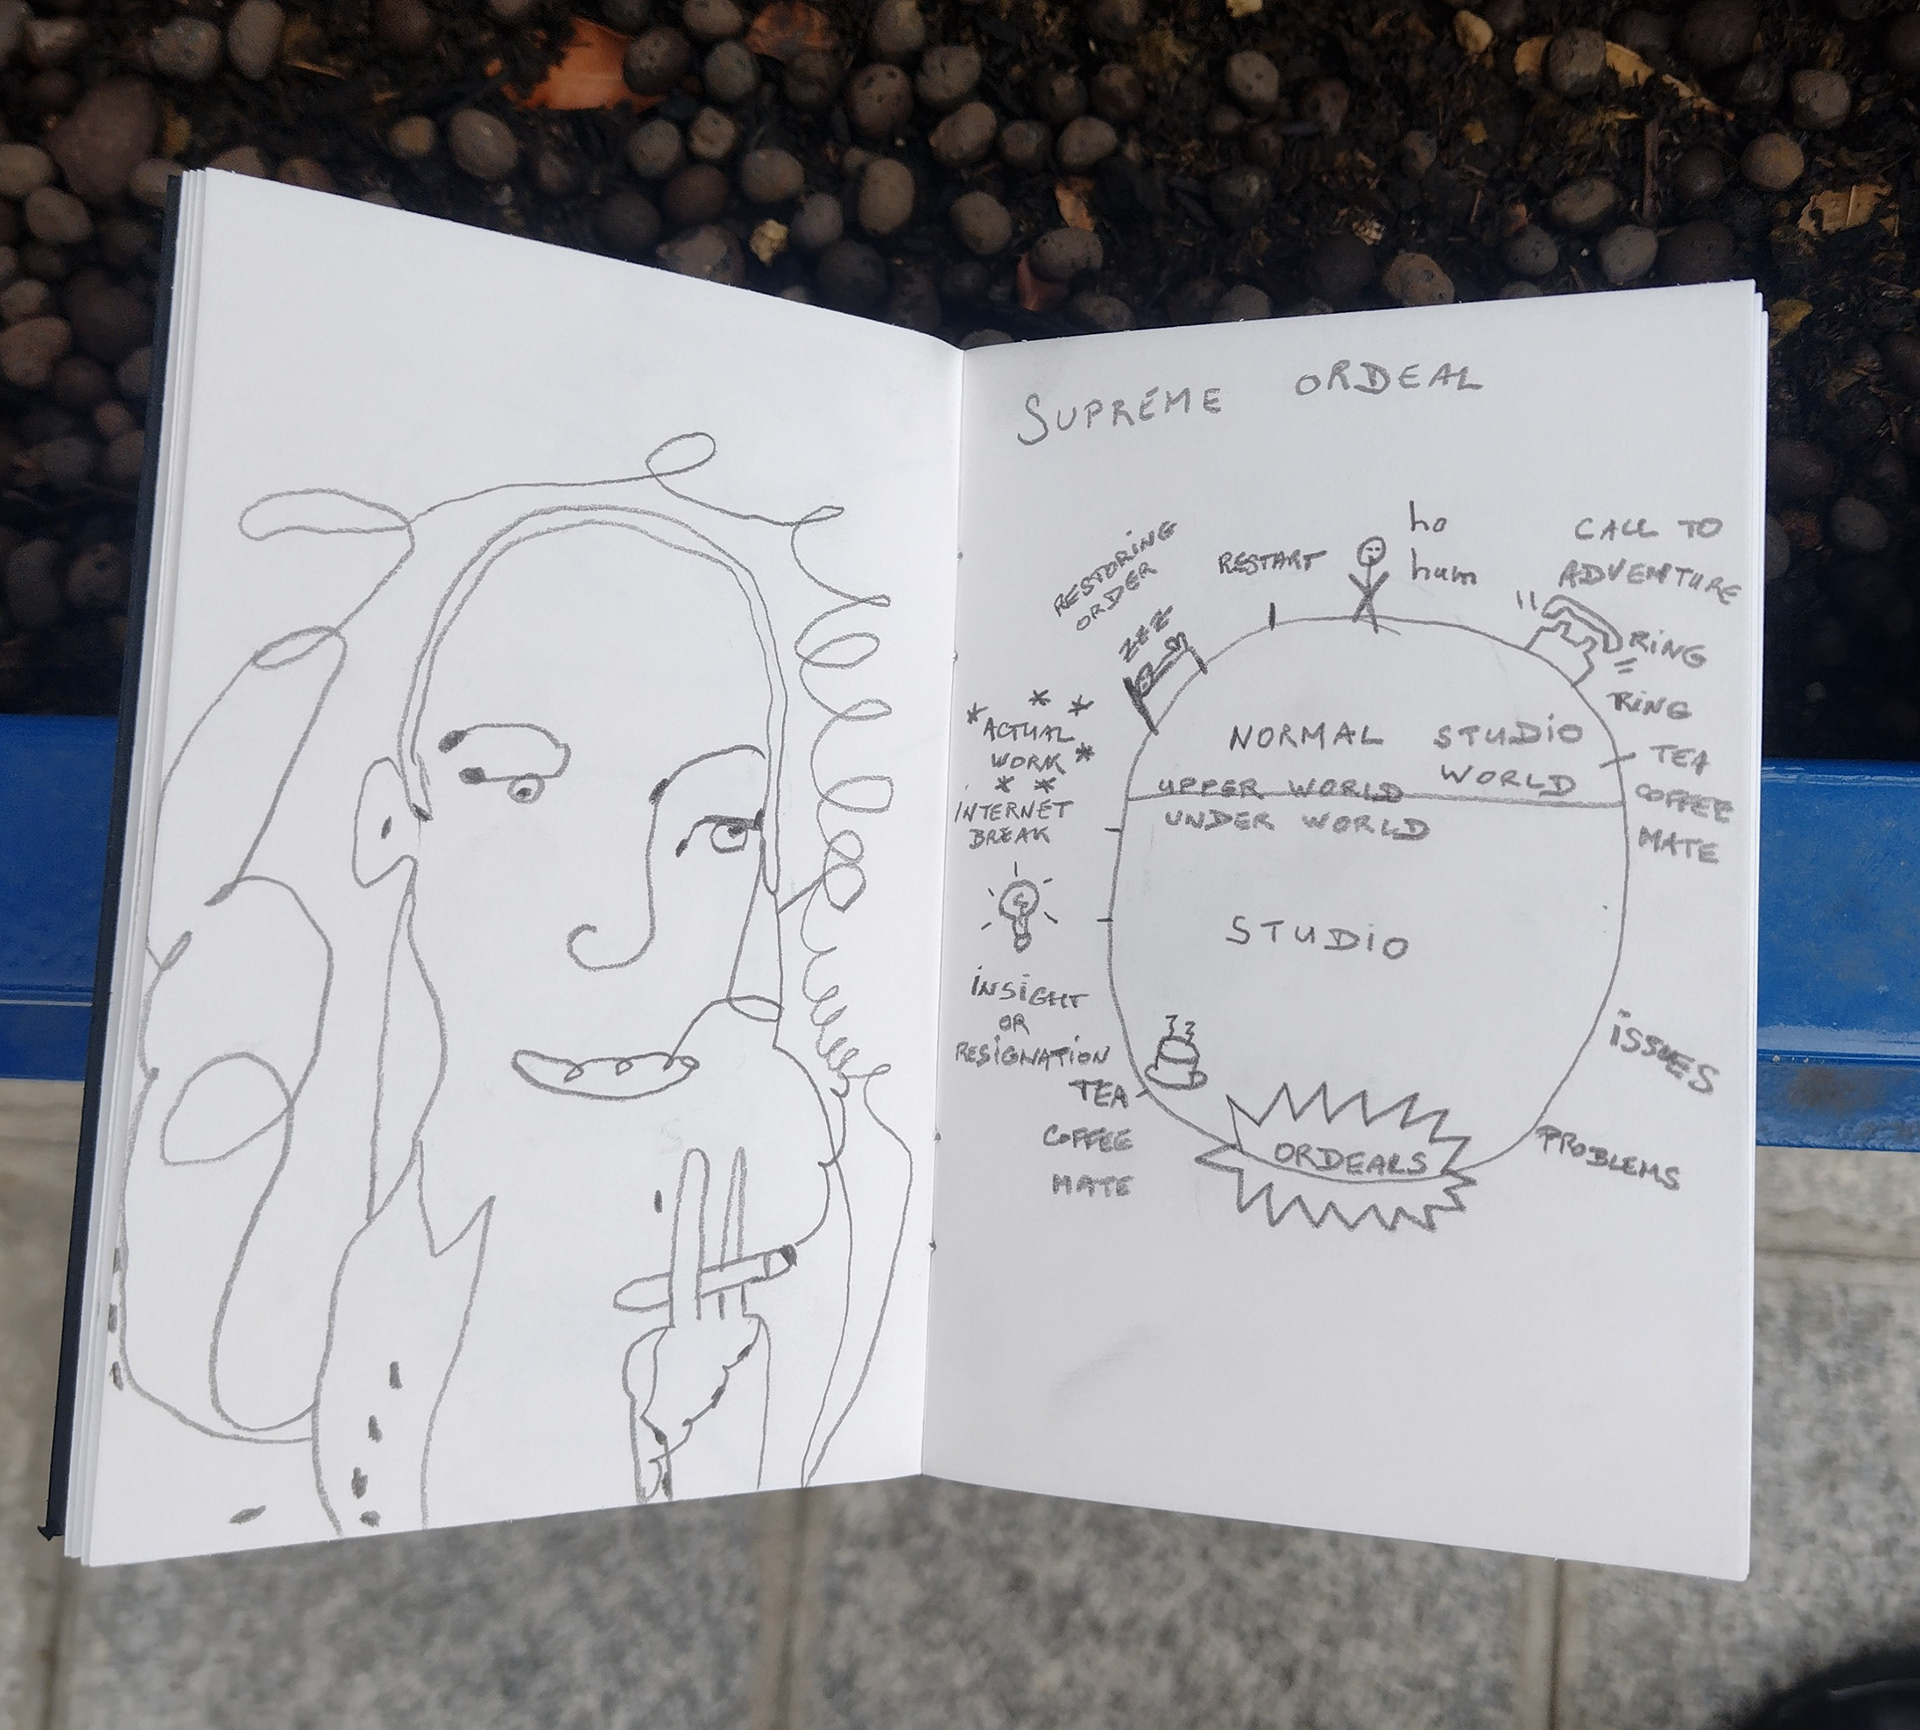 SUPREME ORDEAL
ho
hum
CALL TO
ADVENTURE
RING
RING
TEA
COFFEE
MATE
ISSUES
PROBLEMS
ORDEALS
TEA
COFFEE
MATE
INSIGHT
OR
RESIGNATION
INTERNET
BREAK
* * *
ACTUAL
WORK *
* *
RESTORING
ORDER
ZZZ
RESTART
NORMAL STUDIO
WORLD
UPPER WORLD
UNDER WORLD
STUDIO